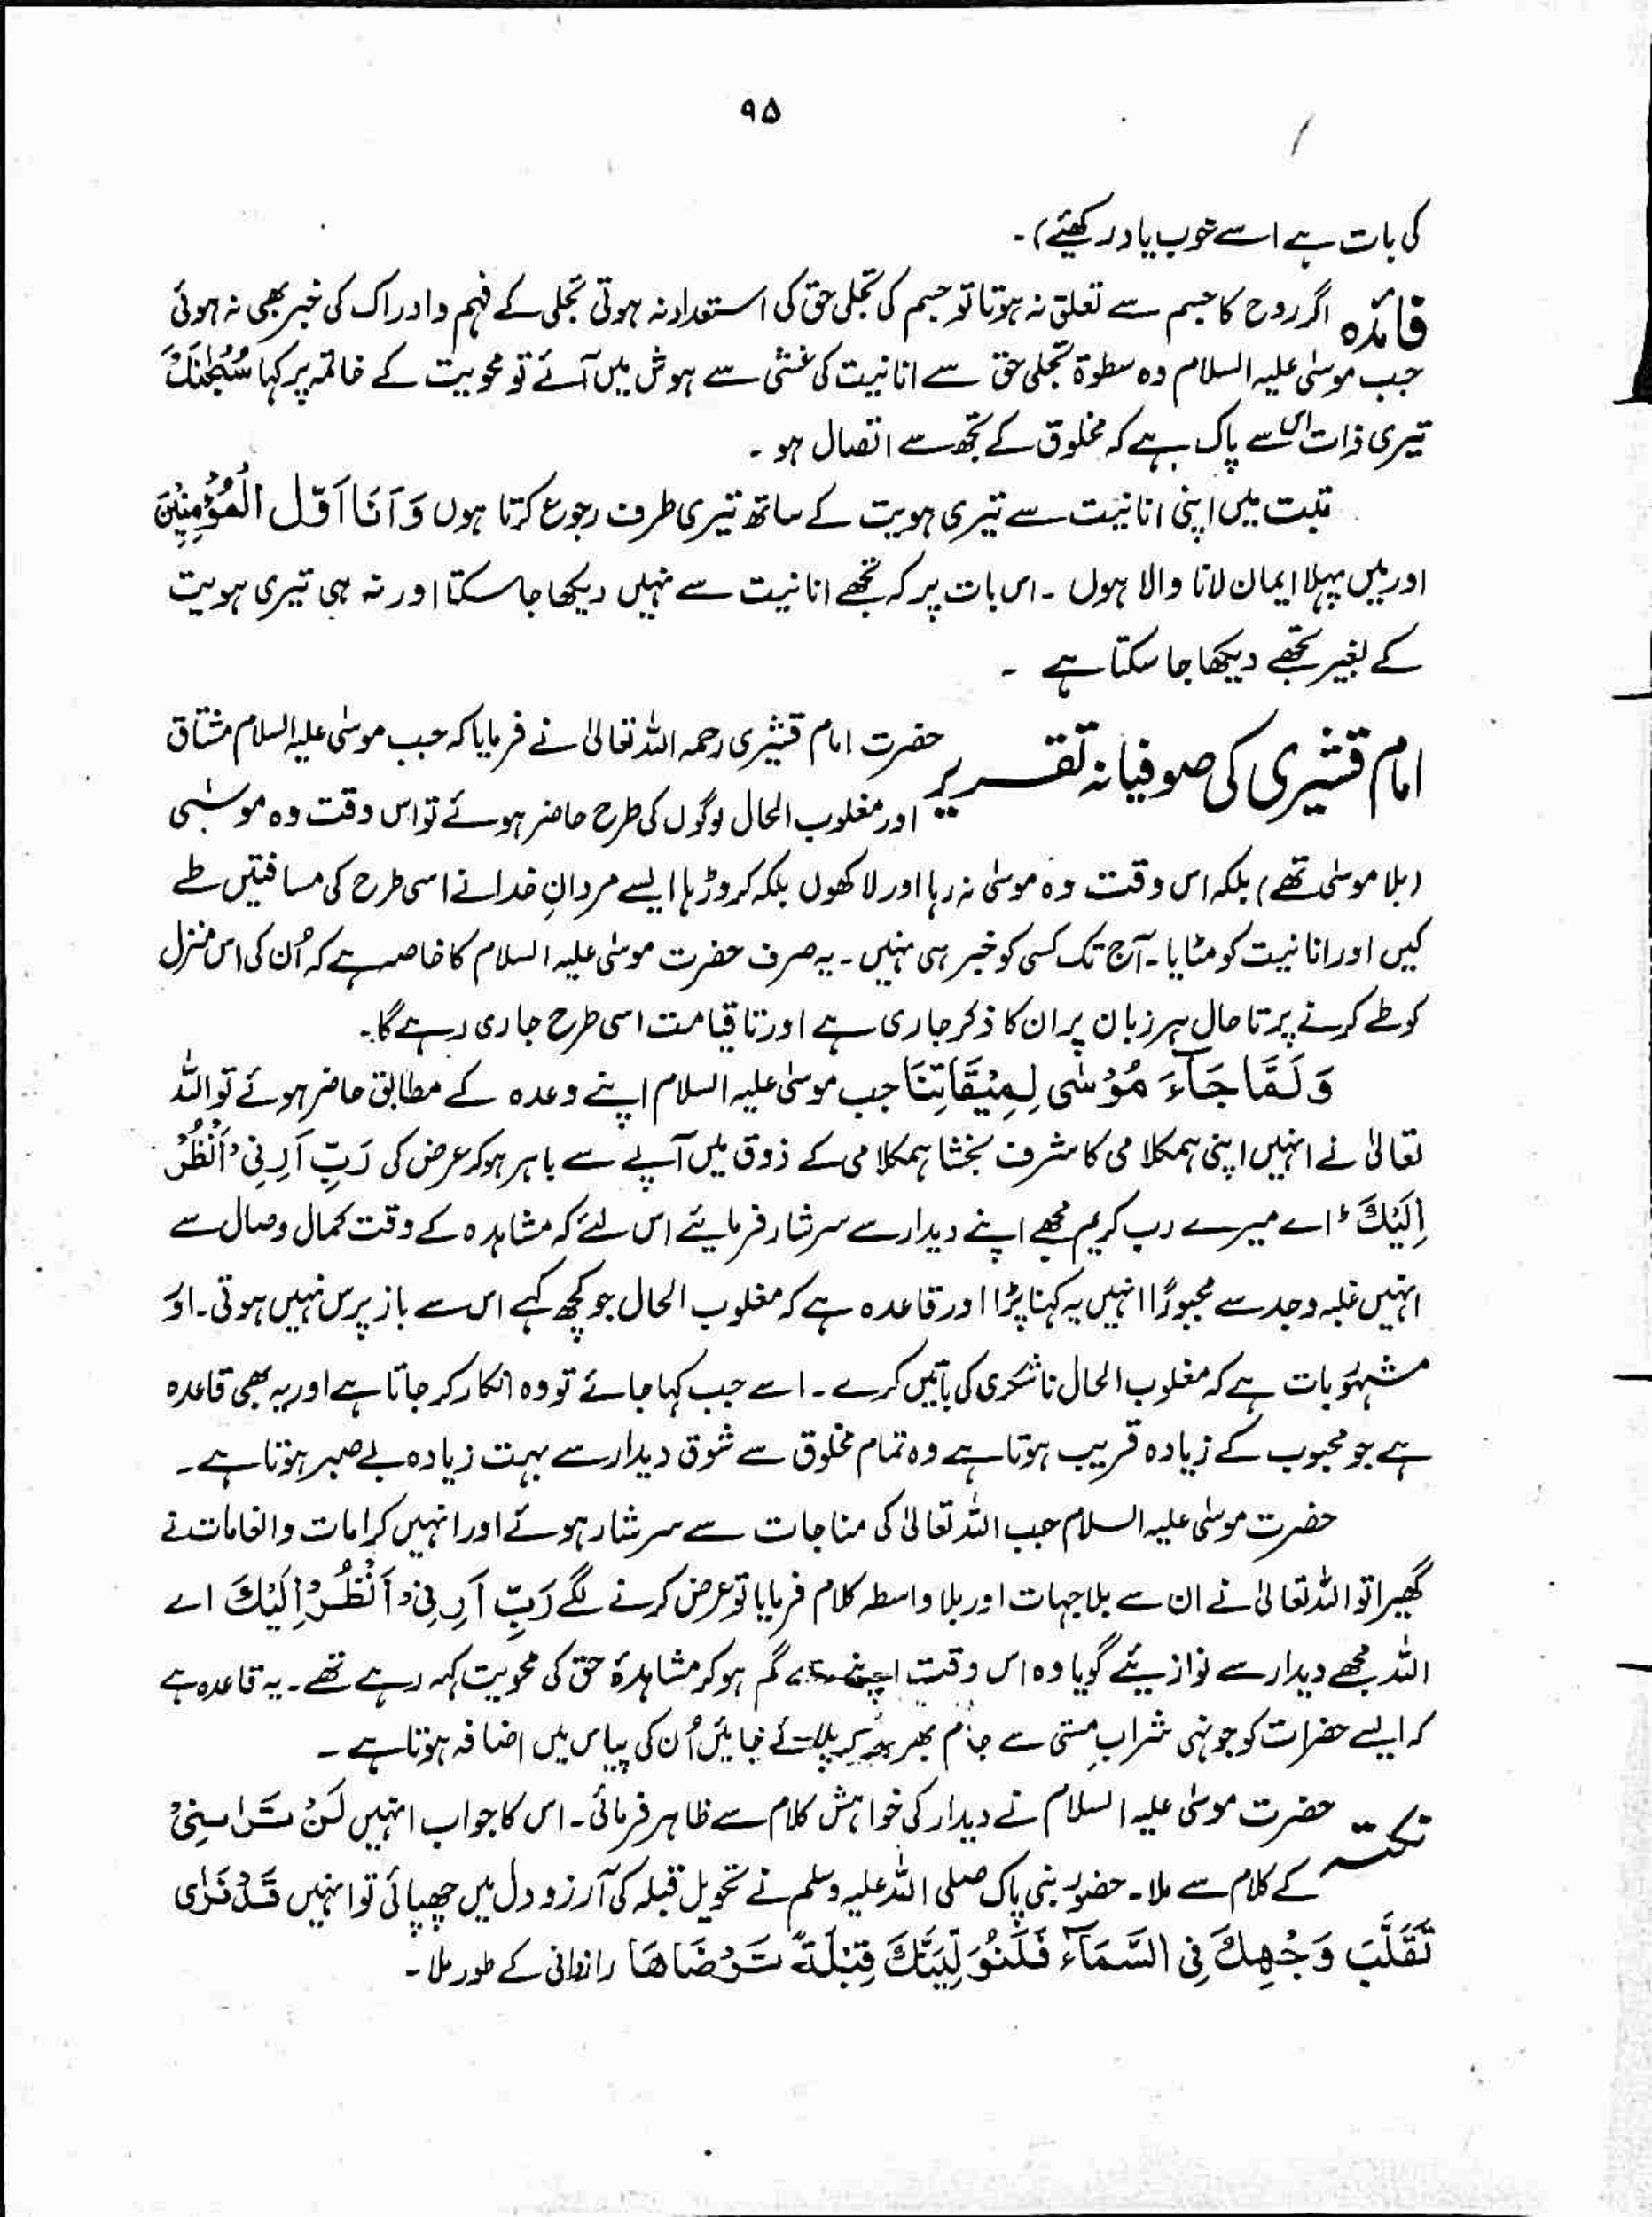 ۹۵
کی بات ہے اسے خوب یاد رکھیئے)۔
فائدہ اگر روح کا جسم سے تعلق نہ ہوتا تو جسم کی تجلی حق کی استعداد نہ ہوتی تجلی کے فہم و ادراک کی خبر بھی نہ ہوئی
جب موسیٰ علیہ السلام وہ سطوۃ تجلی حق سے انانیت کی غشی سے ہوش میں آئے تو محویت کے خاتمہ پر کہا سُبْحٰنَكَ
تیری ذات اس سے پاک ہے کہ مخلوق کے تجھ سے اتصال ہو ۔
تبت میں اپنی انانیت سے تیری ہویت کے ساتھ تیری طرف رجوع کرتا ہوں وَ اَنَا اَوَّل الْمُؤْمِنِيْنَ
اور میں پہلا ایمان لانا والا ہوں ۔ اس بات پر کہ تجھے انانیت سے نہیں دیکھا جا سکتا اور نہ ہی تیری ہویت
کے بغیر تجھے دیکھا جا سکتا ہے ۔
امام قشیری کی صوفیانہ تقریر حضرت امام قشیری رحمہ اللہ تعالیٰ نے فرمایا کہ جب موسیٰ علیہ السلام مشتاق
اور مغلوب الحال لوگوں کی طرح حاضر ہوئے تو اس وقت وہ موسٰی
(بلا موسیٰ تھے) بلکہ اس وقت وہ موسیٰ نہ رہا اور لاکھوں بلکہ کروڑہا ایسے مردانِ خدا نے اسی طرح کی مسافتیں طے
کیں اور انانیت کو مٹایا۔ آج تک کسی کو خبر ہی نہیں ۔ یہ صرف حضرت موسیٰ علیہ السلام کا خاصہ ہے کہ اُن کی اس منزل
کو طے کرنے پر تا حال ہر زبان پر ان کا ذکر جاری ہے اور تا قیامت اسی طرح جاری رہے گا۔
وَلَمَّا جَآءَ مُوْسٰى لِمِيْقَاتِنَا جب موسیٰ علیہ السلام اپنے وعدہ کے مطابق حاضر ہوئے تو اللہ
تعالیٰ نے انہیں اپنی ہمکلامی کا شرف بخشا ہمکلامی کے ذوق میں آپے سے باہر ہو کر عرض کی رَبِّ اَرِنِیْ اَنْظُرْ
اِلَيْكَ اے میرے رب کریم مجھے اپنے دیدار سے سرشار فرمایئے اس لئے کہ مشاہدہ کے وقت کمال وصال سے
انہیں غلبہ وجد سے مجبورًا انہیں یہ کہنا پڑا اور قاعدہ ہے کہ مغلوب الحال جو کچھ کہے اس سے باز پرس نہیں ہوتی۔ اور
مشہور بات ہے کہ مغلوب الحال ناشکری کی باتیں کرے ۔ اسے جب کہا جائے تو وہ انکار کر جاتا ہے اور یہ بھی قاعدہ
ہے جو محبوب کے زیادہ قریب ہوتا ہے وہ تمام مخلوق سے شوق دیدار سے بہت زیادہ بے صبر ہوتا ہے ۔
حضرت موسیٰ علیہ السلام جب اللہ تعالیٰ کی مناجات سے سرشار ہوئے اور انہیں کرامات و انعامات نے
گھیرا تو اللہ تعالیٰ نے ان سے بلا جہات اور بلا واسطہ کلام فرمایا تو عرض کرنے لگے رَبِّ اَرِنِیْ اَنْظُرْ اِلَيْكَ اے
اللہ مجھے دیدار سے نوازیئے گویا وہ اس وقت اپنے گم ہو کر مشاہدۂ حق کی محویت کہہ رہے تھے ۔ یہ قاعدہ ہے
کہ ایسے حضرات کو جونہی شرابِ مستی سے جام بھر بھر کر پلائے جائیں اُن کی پیاس میں اضافہ ہوتا ہے ۔
نکتہ حضرت موسیٰ علیہ السلام نے دیدار کی خواہش کلام سے ظاہر فرمائی ۔ اس کا جواب انہیں لَنْ تَرَانِیْ
کے کلام سے ملا ۔ حضور نبی پاک صلی اللہ علیہ وسلم نے تحویل قبلہ کی آرزو دل میں چھپائی تو انہیں قَدْ نَرٰى
تَقَلُّبَ وَجْهِكَ فِى السَّمَآءِ فَلَنُوَلِّيَنَّكَ قِبْلَةً تَرْضَاهَا کے طور ملا ۔